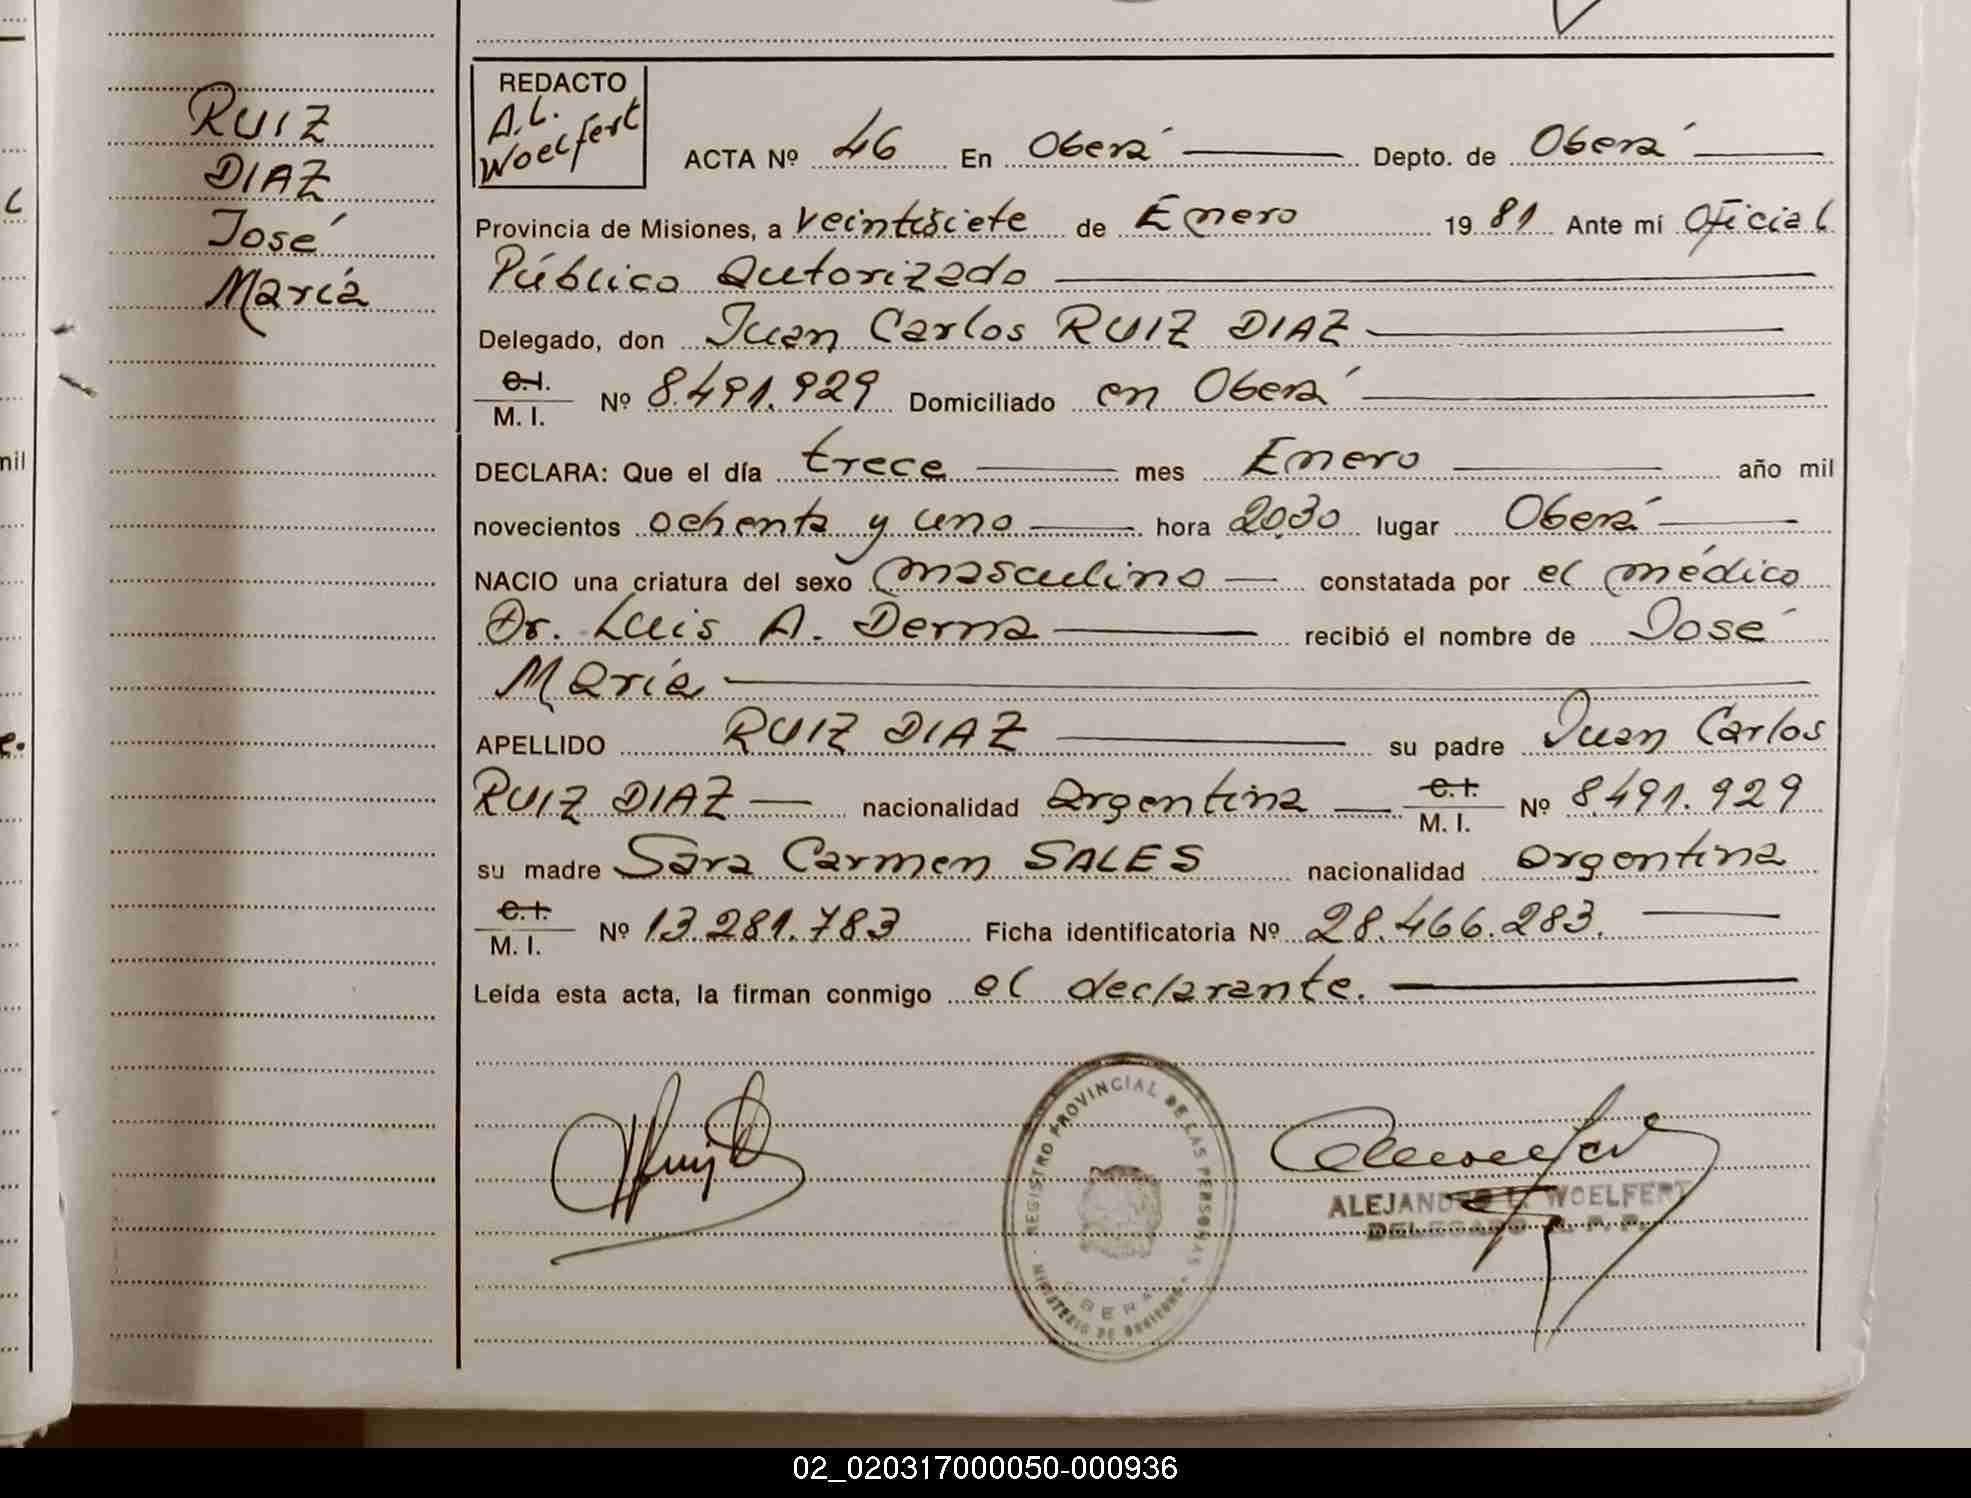 RUIZ
DIAZ
José
María
REDACTO
A.L.
Woelfert
ACTA Nº 46 En Oberá Depto. de Oberá
Provincia de Misiones, a veintisiete de Enero 1981 Ante mí Oficial
Público Autorizado
Delegado, don Juan Carlos RUIZ DIAZ
C.I.
M. I. Nº 8.491.929 Domiciliado en Oberá
DECLARA: Que el día trece mes Enero año mil
novecientos ochenta y uno hora 20,30 lugar Oberá
NACIO una criatura del sexo masculino constatada por el médico
Dr. Luis A. Derna recibió el nombre de José
María
APELLIDO RUIZ DIAZ su padre Juan Carlos
RUIZ DIAZ nacionalidad argentina C.I. M. I. Nº 8491.929
su madre Sara Carmen SALES nacionalidad argentina
C.I.
M. I. Nº 13.281.783 Ficha identificatoria Nº 28.466.283.
Leída esta acta, la firman conmigo el declarante.
REGISTRO PROVINCIAL DE LAS PERSONAS
MINISTERIO DE GOBIERNO
OBERA
ALEJANDRO L. WOELFERT
DELEGADO R. P. P.
mil
02_020317000050-000936